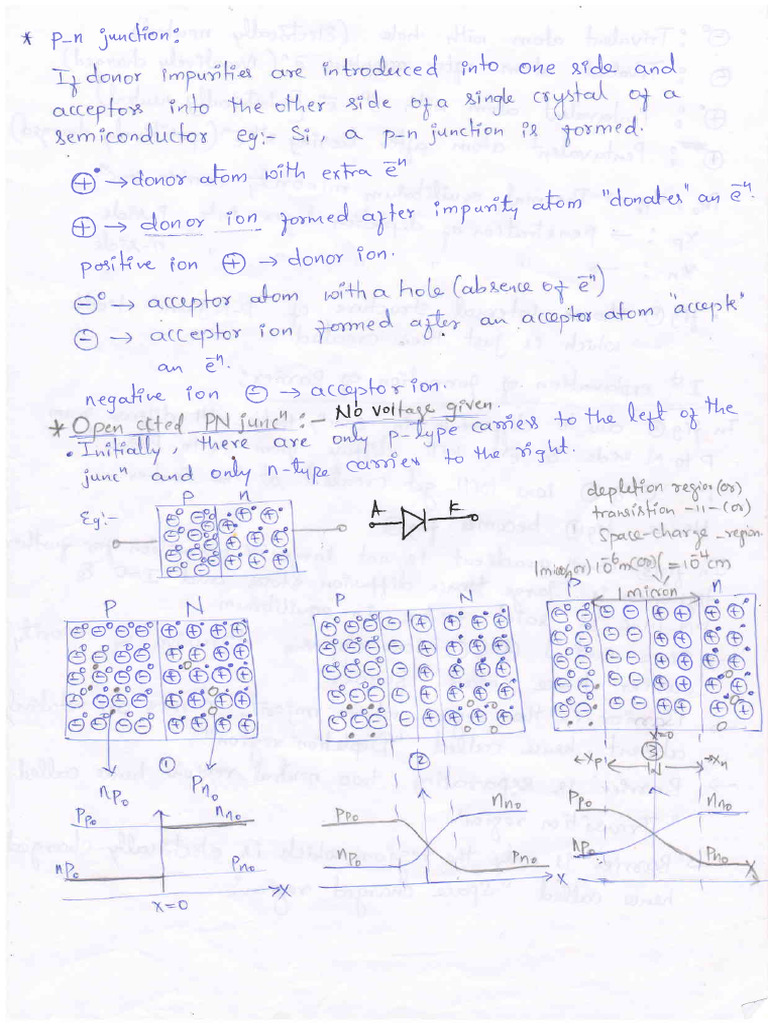 * p-n junction:
If donor impurities are introduced into one side and
acceptors into the other side of a single crystal of a
semiconductor eg:- Si, a p-n junction is formed.
⊕• → donor atom with extra e̅ⁿ
⊕ → donor ion formed after impurity atom "donates" an e̅ⁿ.
positive ion ⊕ → donor ion.
⊖° → acceptor atom with a hole (absence of e̅ⁿ)
⊖ → acceptor ion formed after an acceptor atom "accepts"
an e̅ⁿ.
negative ion ⊖ → acceptor ion.
* Open ccted PN juncⁿ :- No voltage given.
• Initially, there are only p-type carriers to the left of the
juncⁿ and only n-type carriers to the right.
Eg:- P n
A K
depletion region (or)
transistion -11- (or)
space-charge region
1 micro(or) 10⁻⁶m (or) = 10⁻⁴cm
P N
P N
P 1 micron n
① nPo Pno
②
x=0
③
xp xn
PPo nno
nPo Pno
x=0 x
PPo nno
nPo Pno
x
PPo nno
nPo Pno
x